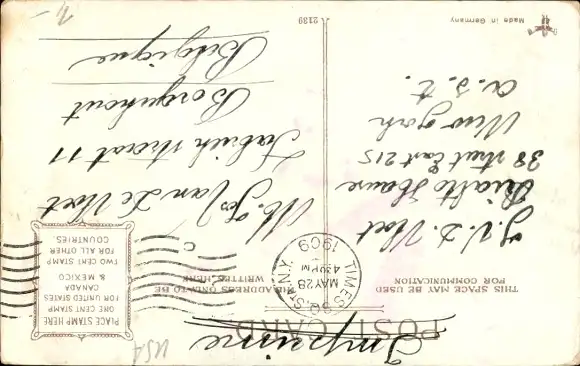 Imprimé
POST CARD
THIS SPACE MAY BE USED
FOR COMMUNICATION
THE ADDRESS ONLY TO BE
WRITTEN HERE
PLACE STAMP HERE
ONE CENT STAMP
FOR UNITED STATES
CANADA
& MEXICO
TWO CENT STAMP
FOR ALL OTHER
COUNTRIES
TIMES SQ. STA. N.Y.
MAY 28
430 PM
1909
J. V. D. Voet
Rialto House
38 street East 215
New york
Mr. Jos Van De Voet
Fabriek straat 11
Borgerhout
Belgique
A 2139
Made in Germany
USA